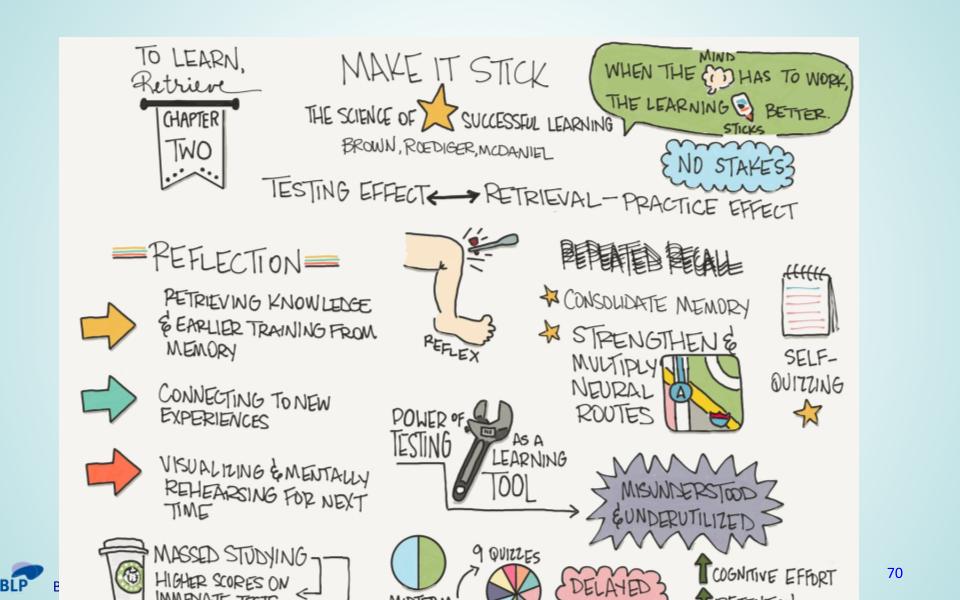 TO LEARN,
Retrieve
CHAPTER
TWO
MAKE IT STICK
THE SCIENCE OF SUCCESSFUL LEARNING
BROWN, ROEDIGER, MCDANIEL
MIND
WHEN THE HAS TO WORK,
THE LEARNING BETTER.
STICKS
NO STAKES
TESTING EFFECT RETRIEVAL-PRACTICE EFFECT
REFLECTION
RETRIEVING KNOWLEDGE
& EARLIER TRAINING FROM
MEMORY
CONNECTING TO NEW
EXPERIENCES
VISUALIZING & MENTALLY
REHEARSING FOR NEXT
TIME
REFLEX
REPEATED RECALL
CONSOLIDATE MEMORY
STRENGTHEN &
MULTIPLY
NEURAL
ROUTES
A
SELF-
QUIZZING
POWER OF
TESTING
AS A
LEARNING
TOOL
MISUNDERSTOOD
& UNDERUTILIZED
MASSED STUDYING
HIGHER SCORES ON
IMMEDIATE TESTS
MIDTERM
9 QUIZZES
DELAYED
COGNITIVE EFFORT
BLP
B
70